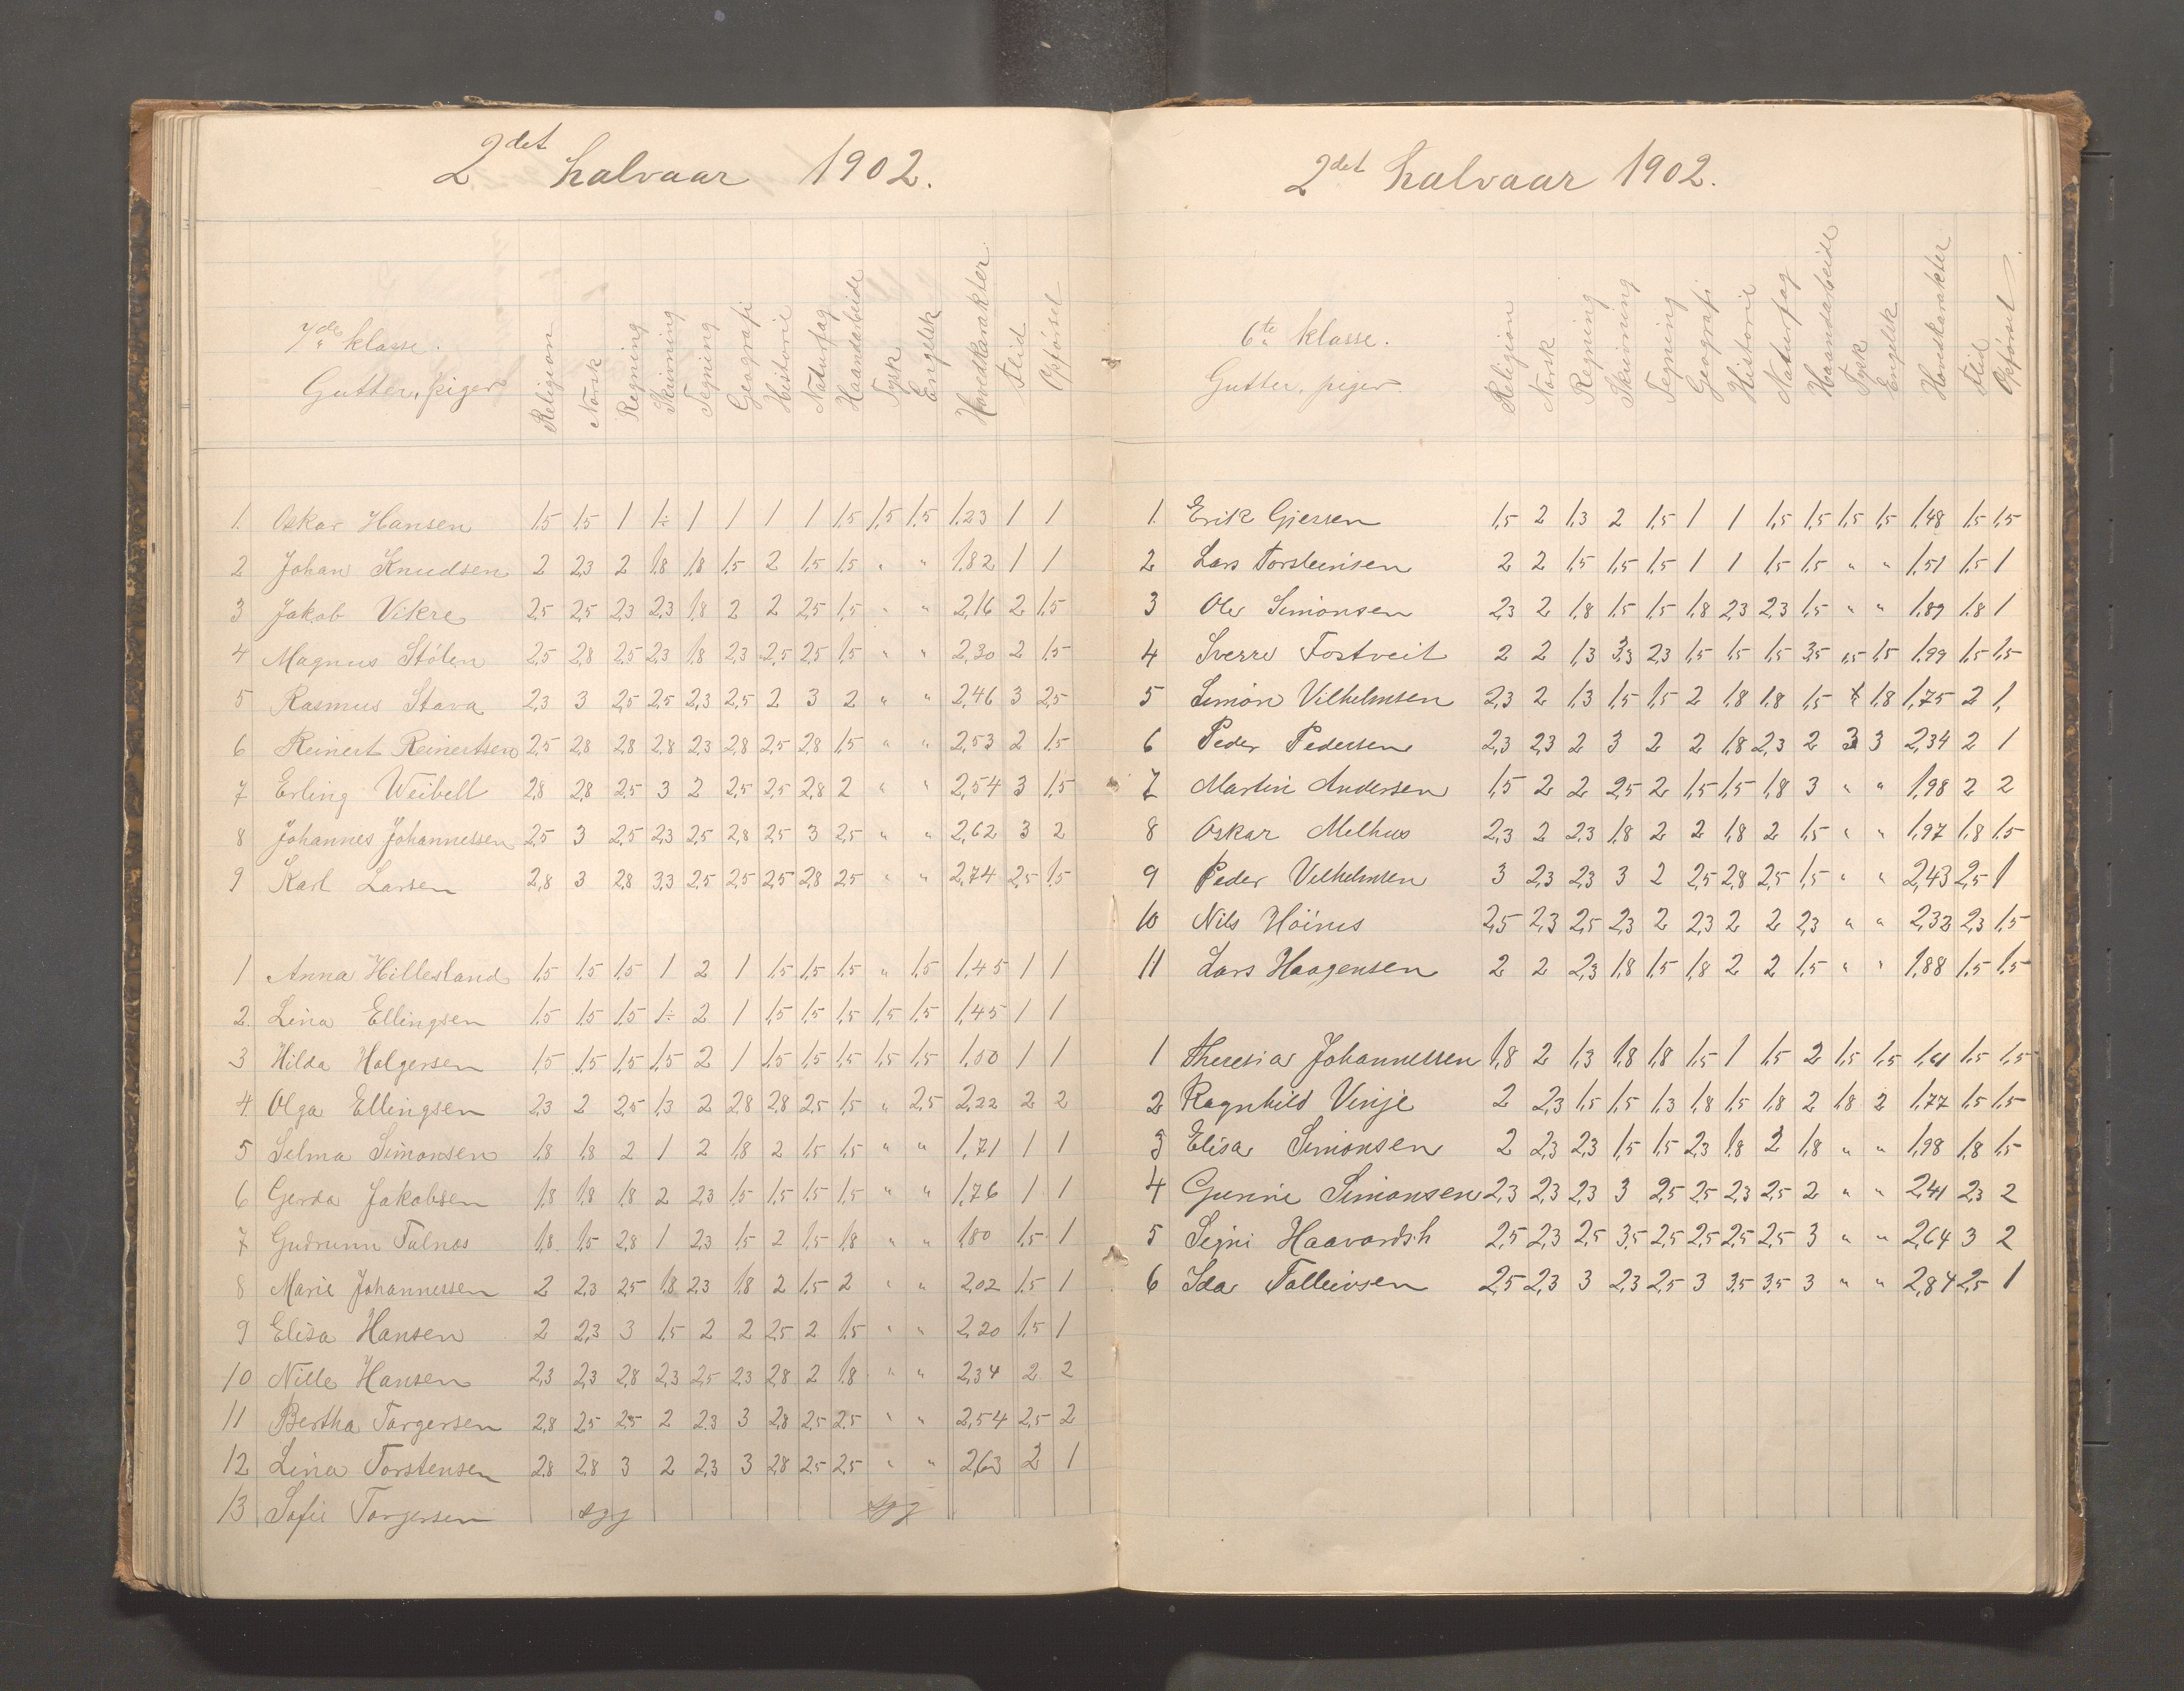 2det halvaar 1902.
7de klasse.
Gutter, piger
Religion Norsk Regning Skrivning Tegning Geografi Historie Naturfag Haandarbeide Tysk Engelsk Hovedkarakter Flid Opførsel
1. Oskar Hansen 1,5 1,5 1 1÷ 1 1 1 1 1,5 1,5 1,5 1,23 1 1
2 Johan Knudsen 2 2,3 2 1,8 1,8 1,5 2 1,5 1,5 " " 1,82 1 1
3 Jakob Vikre 2,5 2,5 2,3 2,3 1,8 2 2 2,5 1,5 " " 2,16 2 1,5
4 Magnus Stølen 2,5 2,8 2,5 2,3 1,8 2,3 2,5 2,5 1,5 " " 2,30 2 1,5
5 Rasmus Stava 2,3 3 2,5 2,5 2,3 2,5 2 3 2 " " 2,46 3 2,5
6 Reinert Reinertsen 2,5 2,8 2,8 2,8 2,3 2,8 2,5 2,8 1,5 " " 2,53 2 1,5
7 Erling Weibell 2,8 2,8 2,5 3 2 2,5 2,5 2,8 2 " " 2,54 3 1,5
8 Johannes Johannessen 2,5 3 2,5 2,3 2,5 2,8 2,5 3 2,5 " " 2,62 3 2
9 Karl Larsen 2,8 3 2,8 3,3 2,5 2,5 2,5 2,8 2,5 " " 2,74 2,5 1,5
1 Anna Hillesland 1,5 1,5 1,5 1 2 1 1,5 1,5 1,5 " 1,5 1,45 1 1
2. Lina Ellingsen 1,5 1,5 1,5 1÷ 2 1 1,5 1,5 1,5 1,5 1,5 1,45 1 1
3 Hilda Holgersen 1,5 1,5 1,5 1,5 2 1 1,5 1,5 1,5 1,5 1,5 1,50 1 1
4 Olga Ellingsen 2,3 2 2,5 1,3 2 2,8 2,8 2,5 1,5 " 2,5 2,22 2 2
5 Selma Simonsen 1,8 1,8 2 1 2 1,8 2 1,5 1,5 " " 1,71 1 1
6 Gerda Jakobsen 1,8 1,8 1,8 2 2,3 1,5 1,5 1,5 1,5 " " 1,76 1 1
7 Gudrunn Falnes 1,8 1,5 2,8 1 2,3 1,5 2 1,5 1,8 " " 1,80 1,5 1
8 Marie Johannessen 2 2,3 2,5 1,8 2,3 1,8 2 1,5 2 " " 2,02 1,5 1
9 Elisa Hansen 2 2,3 3 1,5 2 2 2,5 2 1,5 " " 2,20 1,5 1
10 Nille Hansen 2,3 2,3 2,8 2,3 2,5 2,3 2,8 2 1,8 " " 2,34 2 2
11 Bertha Torgersen 2,8 2,5 2,5 2 2,3 3 2,8 2,5 2,5 " " 2,54 2,5 2
12 Lina Torstensen 2,8 2,8 3 2 2,3 3 2,8 2,5 2,5 " " 2,63 2 1
13 Sofie Torgersen syg syg
2det halvaar 1902.
6te klasse.
Gutter, piger.
Religion Norsk Regning Skrivning Tegning Geografi Historie Naturfag Haandarbeide Tysk Engelsk Hovedkarakter Flid Opførsel
1. Erik Giessen 1,5 2 1,3 2 1,5 1 1 1,5 1,5 1,5 1,5 1,48 1,5 1,5
2 Lars Torsteinsen 2 2 1,5 1,5 1,5 1 1 1,5 1,5 " " 1,51 1,5 1
3 Ole Simonsen 2,3 2 1,8 1,5 1,5 1,8 2,3 2,3 1,5 " " 1,89 1,8 1
4 Sverre Fostveit 2 2 1,3 3,3 2,3 1,5 1,5 1,5 3,5 1,5 1,5 1,99 1,5 1,5
5 Simon Vilhelmsen 2,3 2 1,3 1,5 1,5 2 1,8 1,8 1,5 1,8 1,75 2 1,
6 Peder Pedersen 2,3 2,3 2 3 2 2 1,8 2,3 2 3 3 2,34 2 1
7 Martin Andersen 1,5 2 2 2,5 2 1,5 1,5 1,8 3 " " 1,98 2 2
8 Oskar Melhus 2,3 2 2,3 1,8 2 2 1,8 2 1,5 " " 1,97 1,8 1,5
9 Peder Velhelmsen 3 2,3 2,3 3 2 2,5 2,8 2,5 1,5 " " 2,43 2,5 1
10 Nils Høines 2,5 2,3 2,5 2,3 2 2,3 2 2 2,3 " " 2,32 2,3 1,5
11 Lars Haagensen 2 2 2,3 1,8 1,5 1,8 2 2 1,5 " " 1,88 1,5 1,5
1 Theresia Johannessen 1,8 2 1,3 1,8 1,8 1,5 1 1,5 2 1,5 1,5 1,61 1,5 1,5
2 Ragnhild Vinje 2 2,3 1,5 1,5 1,3 1,8 1,5 1,8 2 1,8 2 1,77 1,5 1,5
3 Elisa Simonsen 2 2,3 2,3 1,5 1,5 2,3 1,8 2 1,8 " " 1,98 1,8 1,5
4 Gurine Simonsen 2,3 2,3 2,3 3 2,5 2,5 2,3 2,5 2 " " 2,41 2,3 2
5 Signi Haavardsh 2,5 2,3 2,5 3,5 2,5 2,5 2,5 2,5 3 " " 2,64 3 2
6 Ida Tolleivsen 2,5 2,3 3 2,3 2,5 3 3,5 3,5 3 " " 2,84 2,5 1